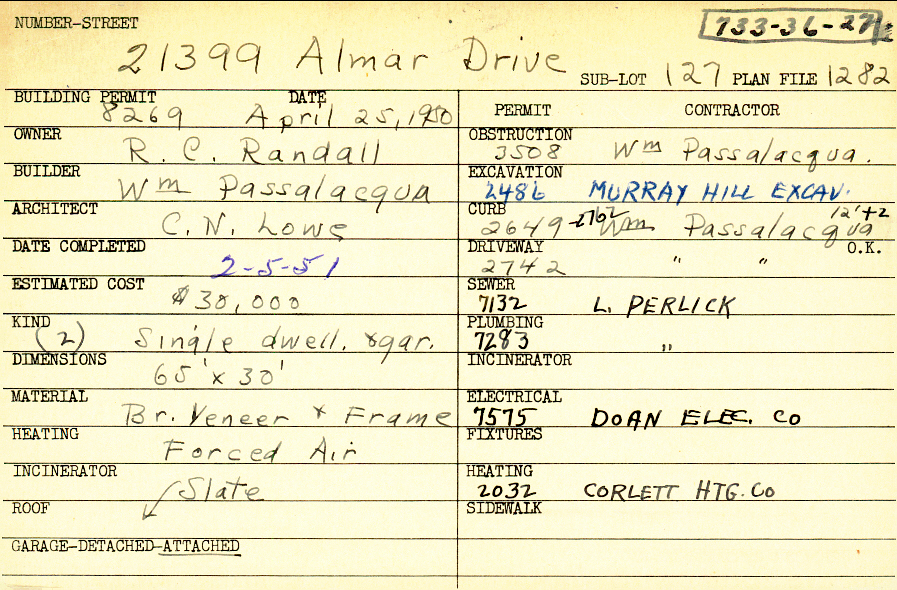 NUMBER-STREET
733-36-27
21399 Almar Drive
SUB-LOT 127 PLAN FILE 1282
BUILDING PERMIT DATE
8269 April 25, 1950
OWNER
R. C. Randall
BUILDER
Wm Passalacqua
ARCHITECT
C. N. Lowe
DATE COMPLETED
2-5-51
ESTIMATED COST
$30,000
KIND
(2) Single dwell. & gar.
DIMENSIONS
65' x 30'
MATERIAL
Br. Veneer & Frame
HEATING
Forced Air
INCINERATOR
Slate
ROOF
GARAGE-DETACHED-ATTACHED
PERMIT CONTRACTOR
OBSTRUCTION
3508 Wm Passalacqua.
EXCAVATION
2486 MURRAY HILL EXCAV.
CURB 12'+2
2649-2762 Wm Passalacqua
DRIVEWAY O.K.
2742 " "
SEWER
7132 L. PERLICK
PLUMBING
7283 "
INCINERATOR
ELECTRICAL
7575 DOAN ELEC. CO
FIXTURES
HEATING
2032 CORLETT HTG. CO
SIDEWALK